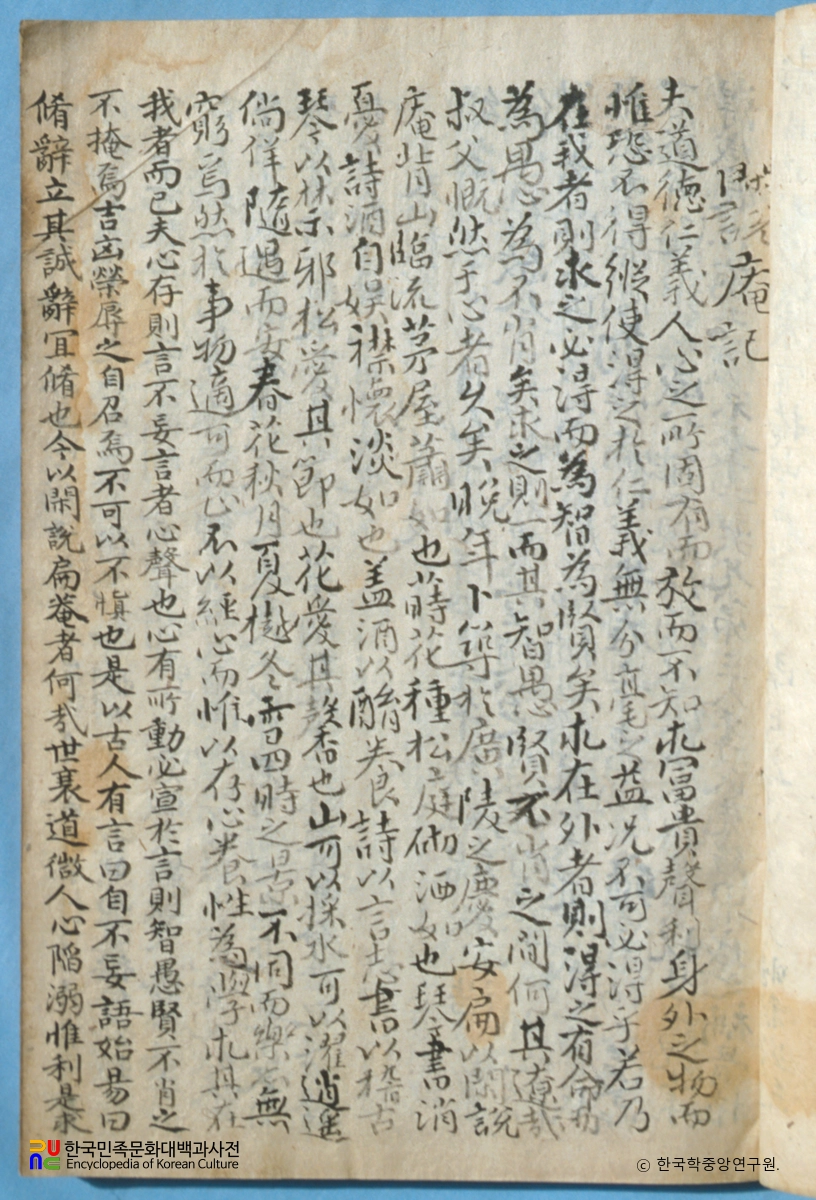 閑說庵記
夫道德仁義人心之所固有而放而不知求冨貴聲利身外之物而
惟恐不得縱使得之於仁義無分毫之益况不可必得乎若乃
在我者則求之必得而為智為賢矣求在外者則得之有命而
為愚為不肖矣求之則一而其智愚賢不肖之間何其遼哉
叔父慨然于心者久矣晩年卜築於廣陵之慶安扁以閑說
庵背山臨流茅屋蕭如也蒔花種松庭砌洒如也琴書消
憂詩酒自娛襟懷淡如也盖酒以酧養詩以言志書以稽古
琴以禁邪松愛其節也花愛其馨香也山可以採水可以濯逍遥
倘佯隨遇而安春花秋月夏樾冬雪四時之景不同而樂亦無
窮焉然於事物適可而止不以經心而惟以存心養性為學求其在
我者而已夫心存則言不妄言者心聲也心有所動必宣於言則智愚賢不肖之
不掩焉吉凶榮辱之自召焉不可以不愼也是以古人有言曰自不妄語始昜曰
脩辭立其誠辭冝脩也今以閑說扁菴者何㢤世衰道微人心陷溺惟利是求
한국민족문화대백과사전
Encyclopedia of Korean Culture
ⓒ 한국학중앙연구원.